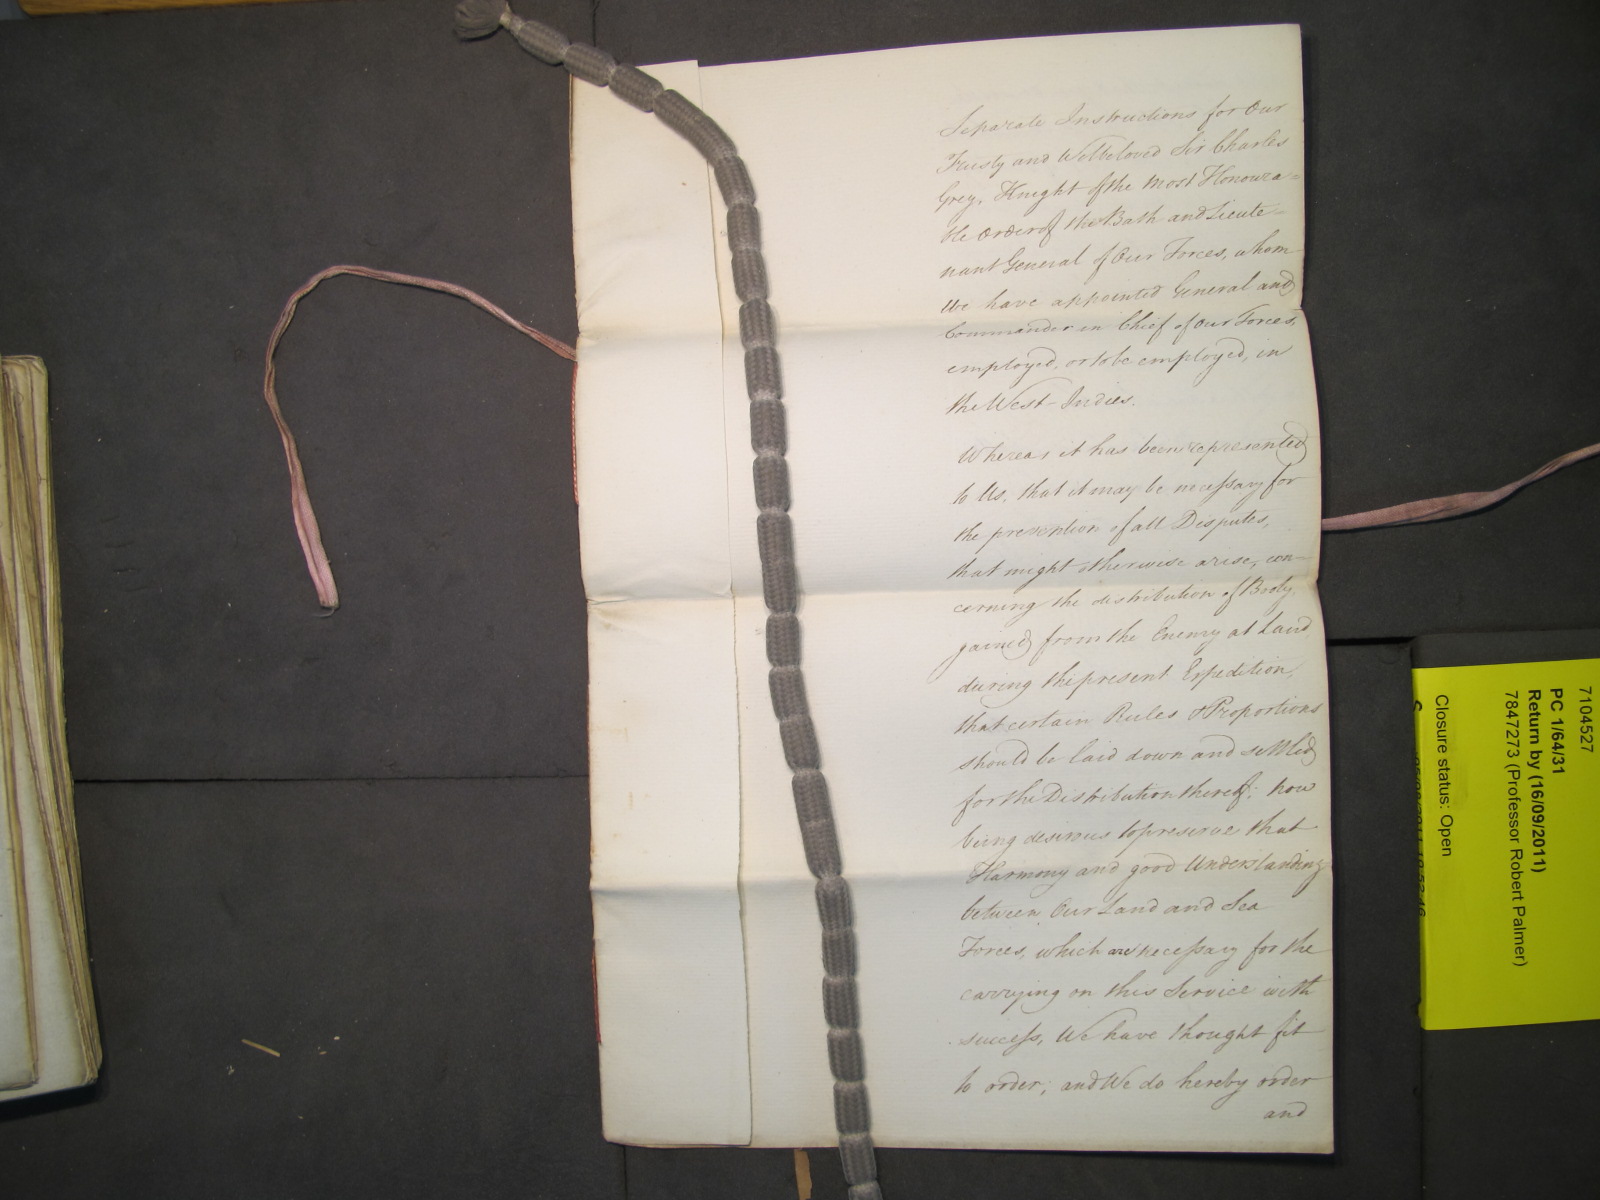 Separate Instructions for Our
Trusty and Welbeloved Sir Charles
Grey, Knight of the most Honoura=
ble Order of the Bath and Lieute-
nant General of Our Forces, whom
We have appointed General and
Commander in Chief of Our Forces,
employed, or to be employed, in
the West-Indies.
Whereas it has been represented
to Us, that it may be necessary for
the prevention of all Disputes,
that might otherwise arise, con-
cerning the distribution of Booty,
gained from the Enemy at Land
during the present Expedition,
that certain Rules & Proportions
should be laid down and settled
for the Distribution thereof; now
being desirous to preserve that
Harmony and good Understanding
between Our Land and Sea
Forces, which are necessary for the
carrying on this Service with
success, We have thought fit
to order, and We do hereby order
and
7104527
PC 1/64/31
Return by (16/09/2011)
7847273 (Professor Robert Palmer)
Closure status: Open